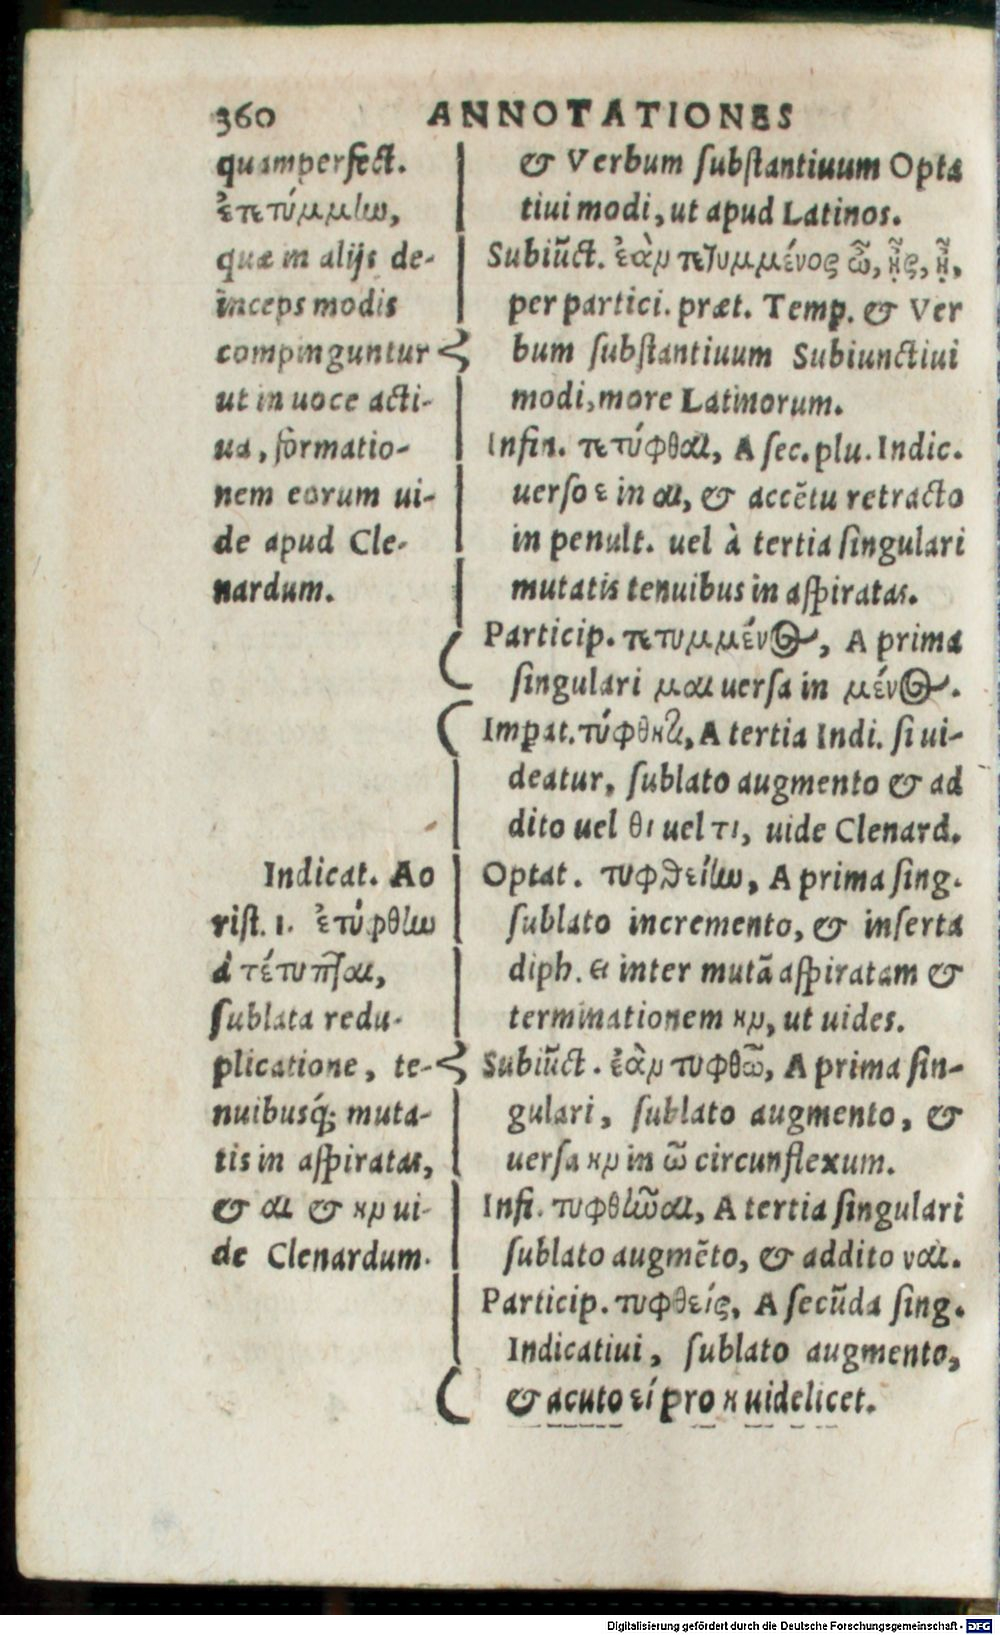 360 ANNOTATIONES
quamperfect.
ἐτετύμμίω,
quæ in alijs de-
inceps modis
compinguntur
ut in uoce acti-
ua, formatio-
nem eorum ui-
de apud Cle-
nardum.
& Verbum substantiuum Opta
tiui modi, ut apud Latinos.
Subiũct. ἐὰν τετυμμένος ὦ, ᾖς, ᾖ,
per partici. præt. Temp. & Ver
bum substantiuum Subiunctiui
modi, more Latinorum.
Infin. τετύφθαι, A sec. plu. Indic.
uerso ε in αι, & accẽtu retracto
in penult. uel à tertia singulari
mutatis tenuibus in aspiratas.
Particip. τετυμμένος, A prima
singulari μαι uersa in μένος.
Imperat. τύφθητι, A tertia Indi. si ui-
deatur, sublato augmento & ad
dito uel θι uel τι, uide Clenard.
Indicat. Ao
rist. 1. ἐτύφθίω
à τέτυπται,
sublata redu-
plicatione, te-
nuibusq́; muta-
tis in aspiratas,
& αι & ην ui-
de Clenardum.
Optat. τυφθείίω, A prima sing.
sublato incremento, & inserta
diph. ει inter mutã aspiratam &
terminationem ην, ut uides.
Subiũct. ἐὰν τυφθῶ, A prima sin-
gulari, sublato augmento, &
uersa ην in ῶ circunflexum.
Infi. τυφθῆναι, A tertia singulari
sublato augmẽto, & addito ναι.
Particip. τυφθείς, A secũda sing.
Indicatiui, sublato augmento,
& acuto εί pro η uidelicet.
Digitalisierung gefördert durch die Deutsche Forschungsgemeinschaft - DFG